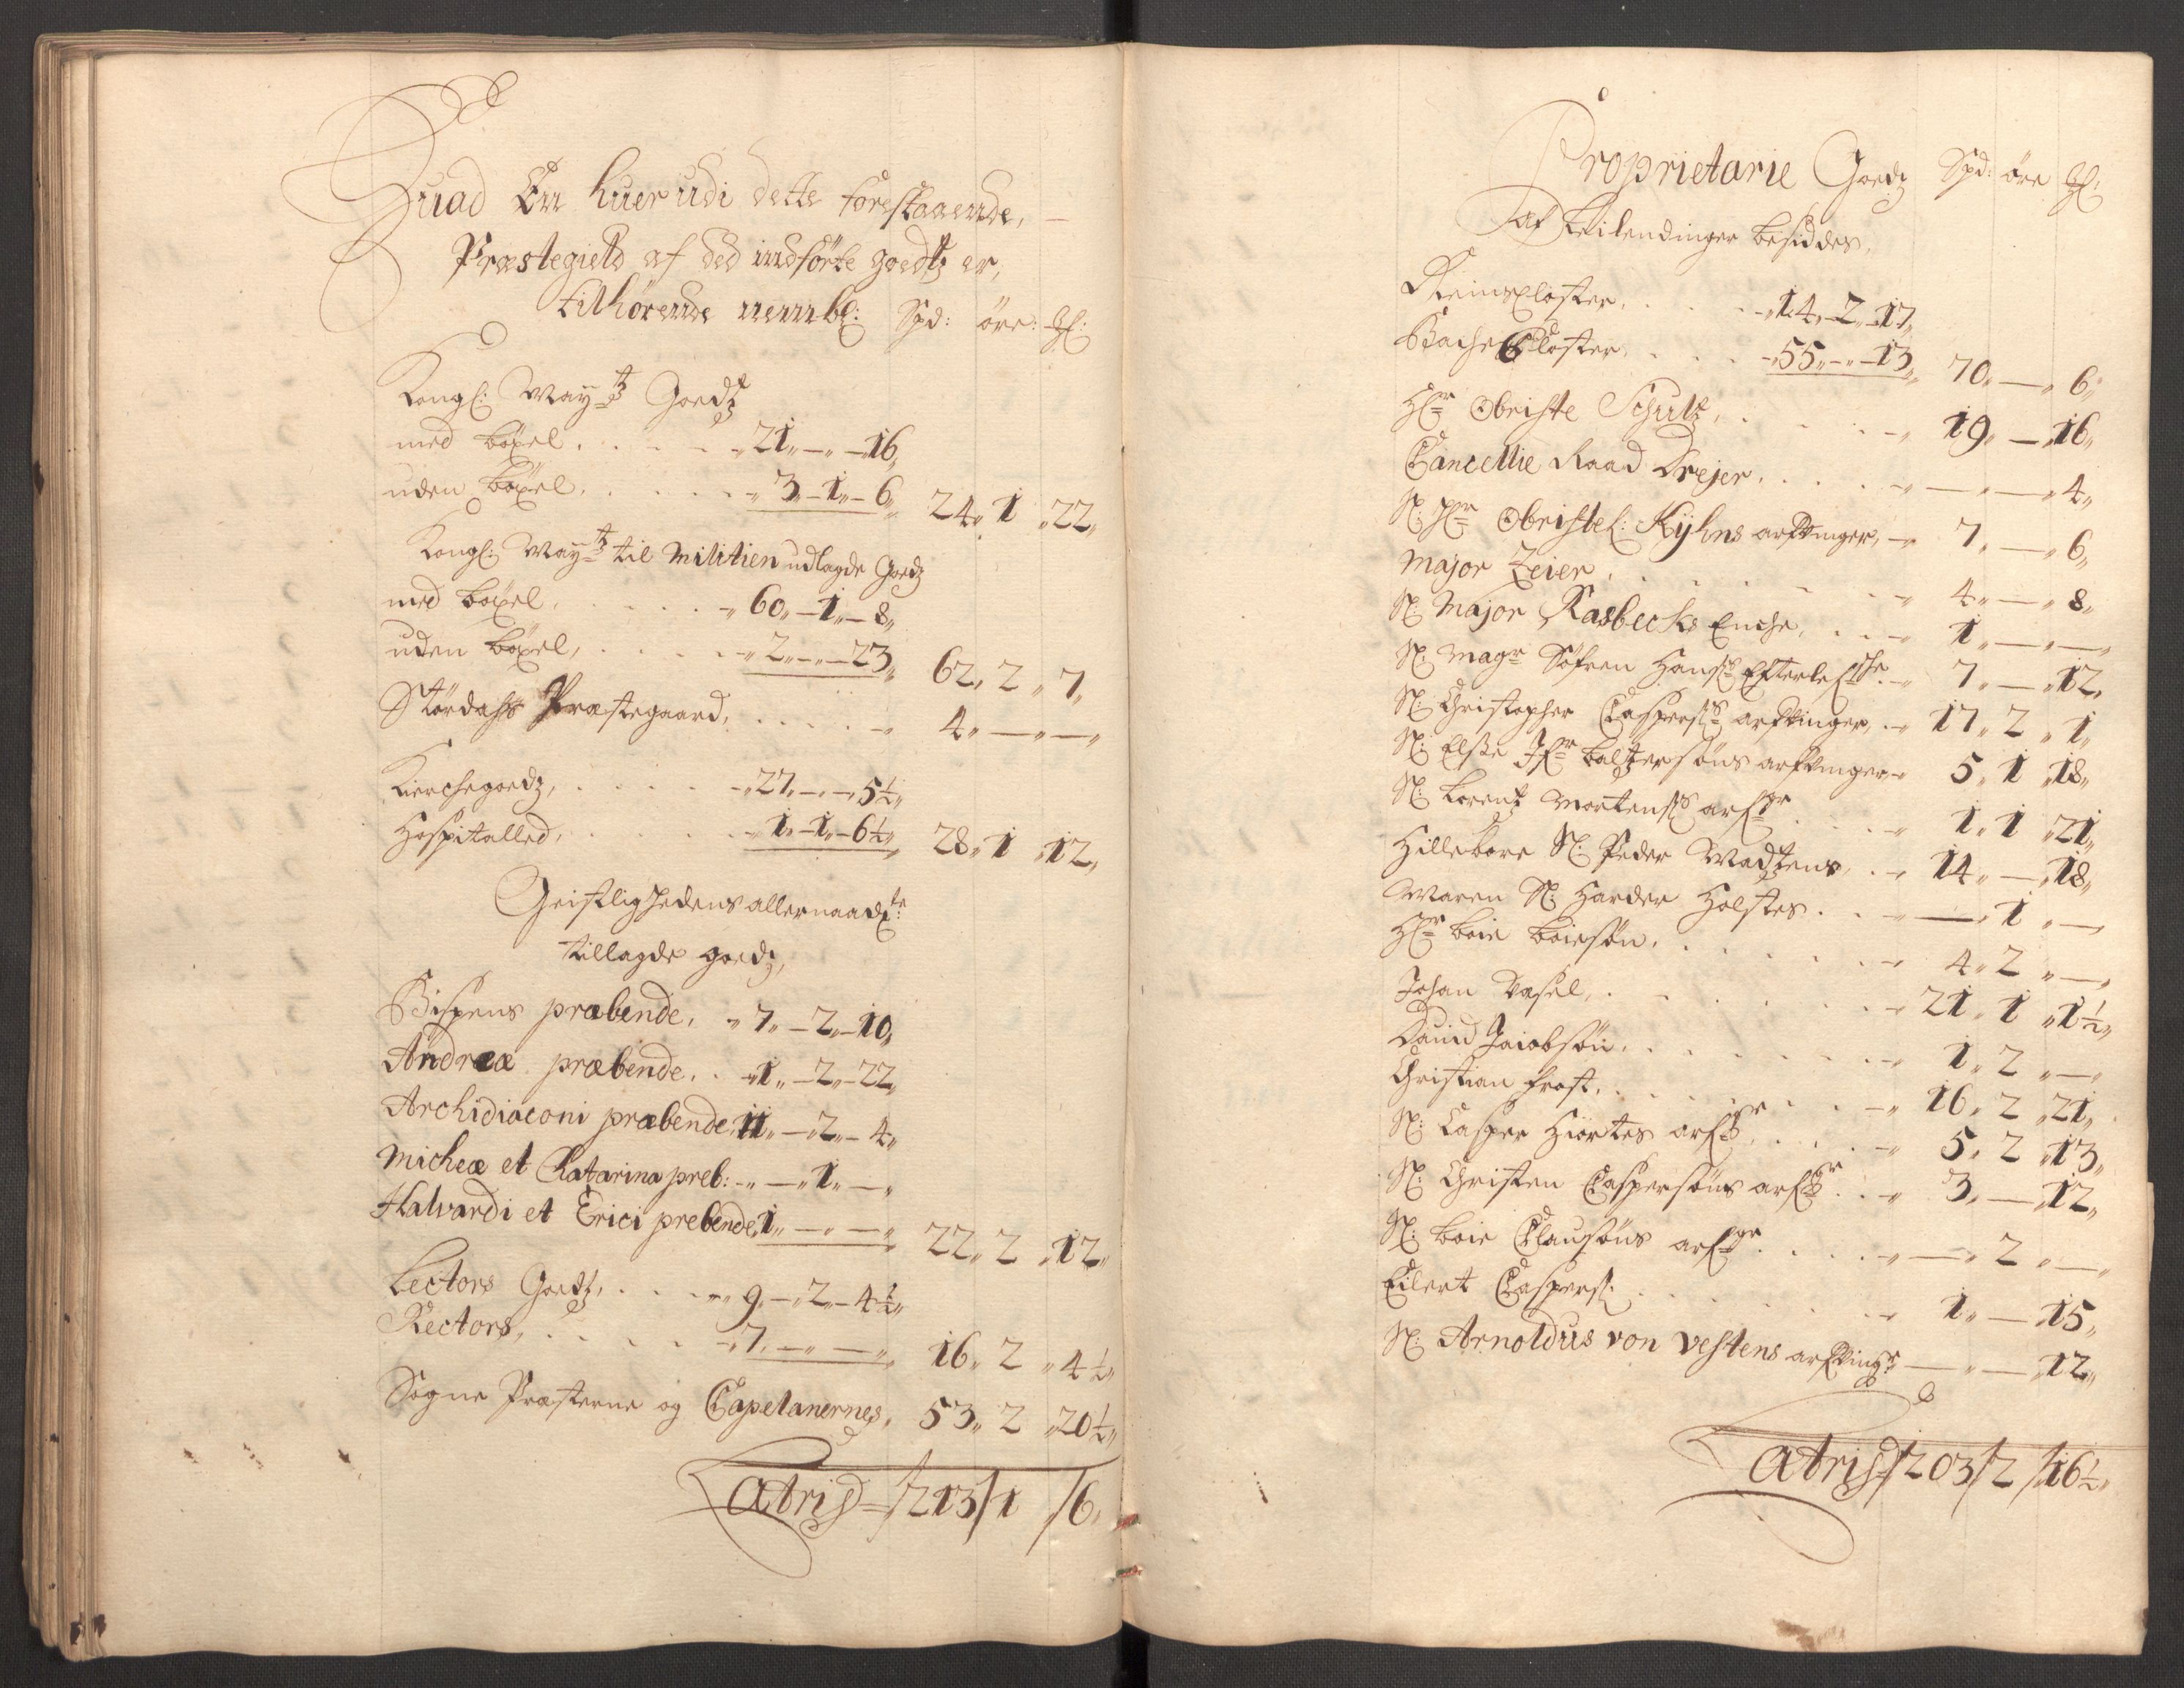 Huad En huer udi dette forestaaende,
Præstegield af ded indførte goedtz er,
tilhørende nembl: Spd: öre: Ml:
Kongl: May:tz Goedtz
med böxel . . . . 21 „ — „ 16 „
uden böxel . . . . . 3 „ 1 „ 6 „ 24 „ 1 „ 22 „
Kongl: May:tz til Militien udlagde Goedz
med böxel . . . . . 60 „ 1 „ 8 „
uden böxel, . . . . 2 „ — „ 23 „ 62 „ 2 „ 7 „
Stördahls Præstegaard, . . . . . 4 „ — „ — „
Kierchegoedz, . . . . . 27 „ — „ 5½ „
Hospitalled, . . . . . 1 „ 1 „ 6½ „ 28 „ 1 „ 12 „
Geistlighedens allernaadste
tillagde goedz,
Bispens præbende, „ 7 „ 2 „ 10 „
Andreæ præbende . . 1 „ 2 „ 22 „
Archidiaconi præbende, 11 „ 2 „ 4 „
Micheæ et Catarina preb: — „ 1 „ — „
Halvardi et Erici prebende, 1 „ — „ — „ 22 „ 2 „ 12 „
Lectors Goedtz, . . . . 9 „ 2 „ 4½ „
Rectors, . . . . . 7 „ — „ — „ 16 „ 2 „ 4½ „
Sogne Præsterne og Capelanernes, 53 „ 2 „ 20½ „
Latris 213 / 1 / 6 „
Proprietarie Goedz Spd: öre Ml:
af Leilendinger besiddes,
ReinsCloster, . . . . . 14 „ 2 „ 17 „
Bache Closter, . . . . 55 „ — „ 13 „ 70 „ — „ 6 „
Hr Obriste Schultz, . . . . 19 „ — „ 16 „
Cancellie Raad Drejer, . . . . — „ — „ 4 „
Sl: Hr Obristel: Kyhns arfvinger, 7 „ — „ 6 „
Major Zeier, . . . . . 4 „ — „ 8 „
Sl: Major Rasbecks Enche, . . . 1 „ — „ — „
Sl: Magr Söfren Hans: Efterlefsche . 7 „ — „ 12 „
Sl: Christopher Caspers: arfvinger, . 17 „ 2 „ 1 „
Sl: Elsse Baltzersöns arfvinger 5 „ 1 „ 18 „
Sl: Lorentz Mortens: arfgr . . . . 1 „ 1 „ 21 „
Hilleborre Sl: Peder Madzens, . 14 „ — „ 18 „
Maren Sl: Harder Holstes . . . — „ 1 „ — „
Hr boie boiesön, . . . . . 4 „ 2 „ — „
Johan Vasel, . . . . . 21 „ 1 „ 1½ „
Dauid Jacobsön, . . . . . 1 „ 2 „ — „
Christian Frost, . . . . . 16 „ 2 „ 21 „
Sl: Casper Hiortes arfgr, . . . . 5 „ 2 „ 13 „
Sl: Christen Caspersöns arfgr . . . 3 „ — „ 12 „
Sl: boie Clausöns arfgr . . . . — „ 2 „ — „
Eilert Caspers: . . . . . 1 „ — „ 15 „
Sl: Arnoldus von Vestens arfvingr — „ — „ 12 „
Latris 203 / 2 / 16½ „